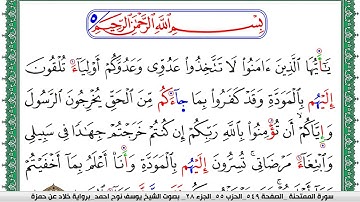 بِسْمِ ٱللَّهِ ٱلرَّحْمَٰنِ ٱلرَّحِيمِ
يَٰٓأَيُّهَا ٱلَّذِينَ ءَامَنُوا۟ لَا تَتَّخِذُوا۟ عَدُوِّى وَعَدُوَّكُمْ أَوْلِيَآءَ تُلْقُونَ
إِلَيْهُم بِٱلْمَوَدَّةِ وَقَدْ كَفَرُوا۟ بِمَا جَآءَكُم مِّنَ ٱلْحَقِّ يُخْرِجُونَ ٱلرَّسُولَ
وَإِيَّاكُمْ أَن تُؤْمِنُوا۟ بِٱللَّهِ رَبِّكُمْ إِن كُنتُمْ خَرَجْتُمْ جِهَٰدًا فِى سَبِيلِى
وَٱبْتِغَآءَ مَرْضَاتِى تُسِرُّونَ إِلَيْهُم بِٱلْمَوَدَّةِ وَأَنَا۠ أَعْلَمُ بِمَآ أَخْفَيْتُمْ
سورة الممتحنة_ الصفحة ٥٤٩_ الحزب ٥٥_ الجزء ٢٨_ بصوت الشيخ يوسف نوح احمد_ برواية خلاد عن حمزة